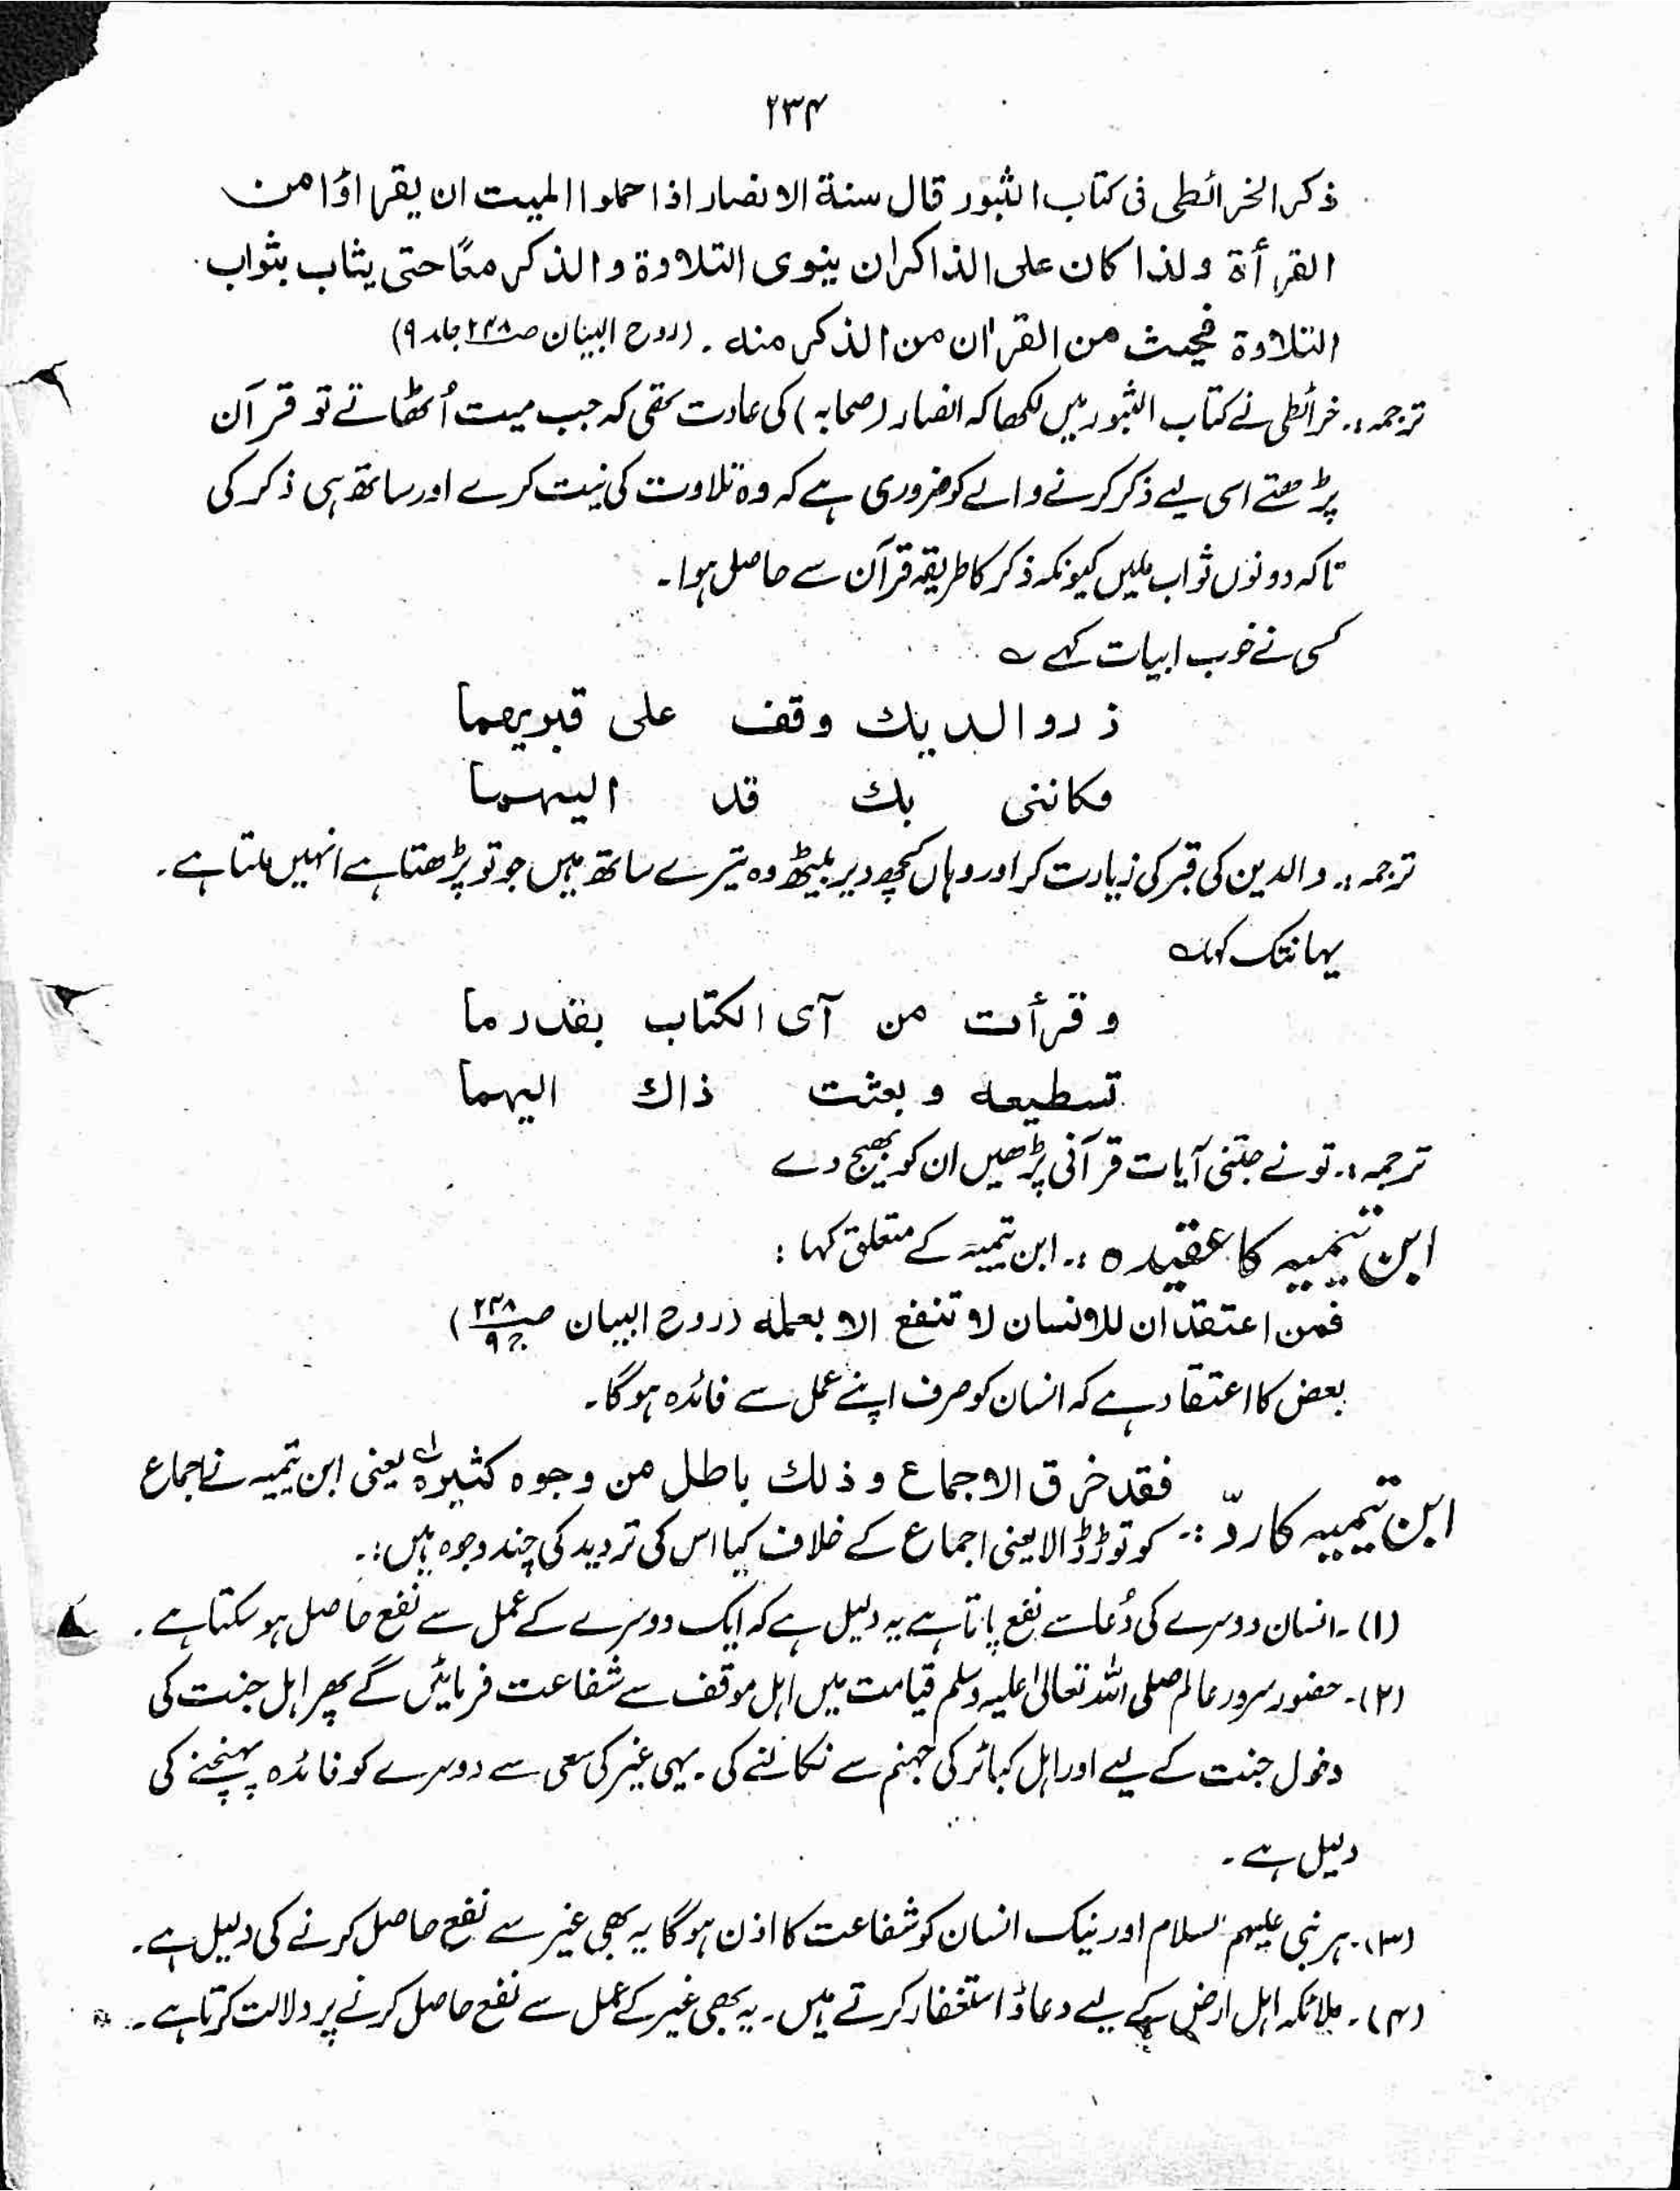 ۲۳۴
ذکر الخرائطی فی کتاب الثبور قال سنة الانصار اذا حملوا المیت ان یقراؤا من
القرأة ولذا کان علی الذاکر ان ینوی التلاوة والذکر معًا حتی یثاب بثواب
التلاوة فحیث من القراٰن من الذکر منه ۔ (روح البیان صـ۲۴۸ جلد ۹)
ترجمہ:۔ خرائطی نے کتاب الثبور میں لکھا کہ انصار (صحابہ) کی عادت تھی کہ جب میت اُٹھاتے تو قرآن
پڑھتے اسی لیے ذکر کرنے والے کو ضروری ہے کہ وہ تلاوت کی نیت کرے اور ساتھ ہی ذکر کی
تاکہ دونوں ثواب ملیں کیونکہ ذکر کا طریقہ قرآن سے حاصل ہوا۔
کسی نے خوب ابیات کہے ؎
ذر والدیك وقف علی قبریهما
فکاننی بك قد الیهما
ترجمہ:۔ والدین کی قبر کی زیارت کر اور وہاں کچھ دیر بیٹھ وہ تیرے ساتھ ہیں جو تو پڑھتا ہے انہیں ملتا ہے۔
یہانتک کہا؎
وقرأت من آی الکتاب بقدر ما
تسطیعه وبعثت ذاك الیهما
ترجمہ:۔ تو نے جتنی آیات قرآنی پڑھیں ان کو بھیج دے
ابن تیمیہ کا عقیدہ:۔ ابن تیمیہ کے متعلق کہا:
فمن اعتقد ان للانسان لا تنفع الا بعمله (روح البیان صـ۲۴۸ ج۹)
بعض کا اعتقاد ہے کہ انسان کو صرف اپنے عمل سے فائدہ ہوگا۔
ابن تیمیہ کا ردّ:۔ فقد خرق الاجماع وذلك باطل من وجوه کثیرة یعنی ابن تیمیہ نے اجماع
کو توڑ ڈالا یعنی اجماع کے خلاف کیا اس کی تردید کی چند وجوہ ہیں:۔
(۱)۔ انسان دوسرے کی دُعا سے نفع پاتا ہے یہ دلیل ہے کہ ایک دوسرے کے عمل سے نفع حاصل ہو سکتا ہے۔
(۲)۔ حضور سرور عالم صلی اللہ تعالیٰ علیہ وسلم قیامت میں اہل موقف سے شفاعت فرمائیں گے پھر اہل جنت کی
دخول جنت کے لیے اور اہل کبائر کی جہنم سے نکالنے کی۔ یہی غیر کی سعی سے دوسرے کو فائدہ پہنچنے کی
دلیل ہے۔
(۳)۔ ہر نبی علیہم السلام اور نیک انسان کو شفاعت کا اذن ہوگا یہ بھی غیر سے نفع حاصل کرنے کی دلیل ہے۔
(۴)۔ ملائکہ اہل ارض کے لیے دعا و استغفار کرتے ہیں۔ یہ بھی غیر کے عمل سے نفع حاصل کرنے پر دلالت کرتا ہے۔